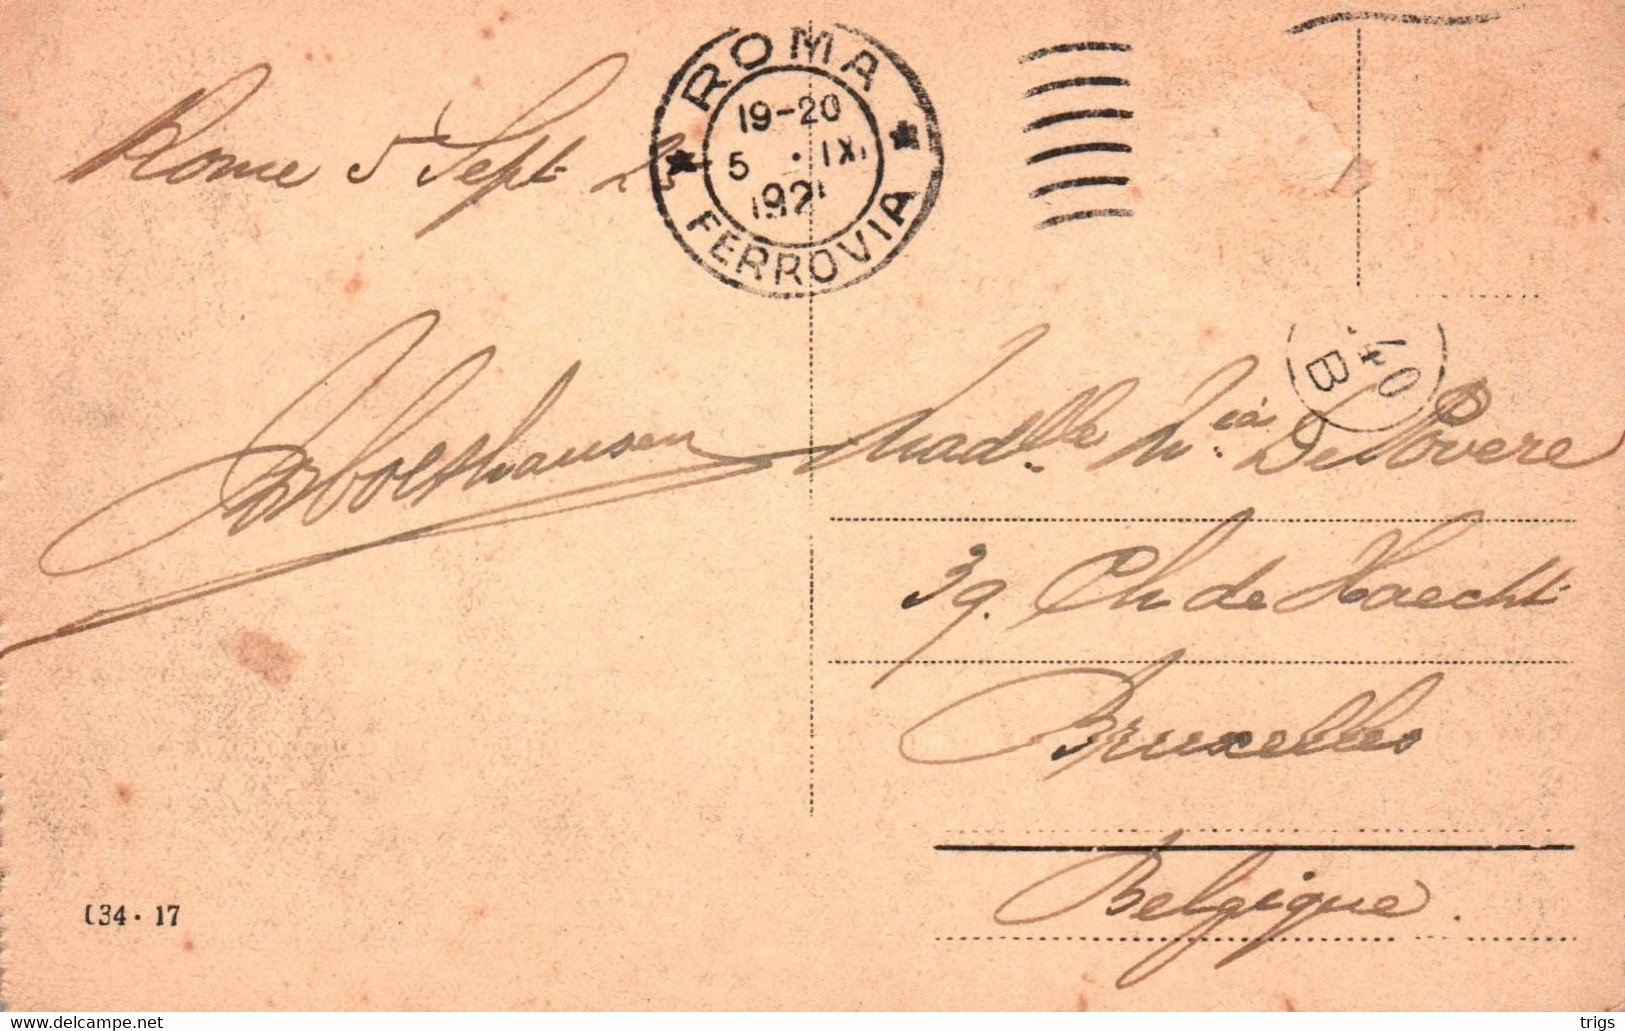 Rome 5 Sept 21
ROMA
19-20
5 · IX
1921
FERROVIA
40
B
Madelle Mia De Novere
39. Ch de Haecht
Bruxelles
Belgique.
134 · 17
www.delcampe.net
trigs